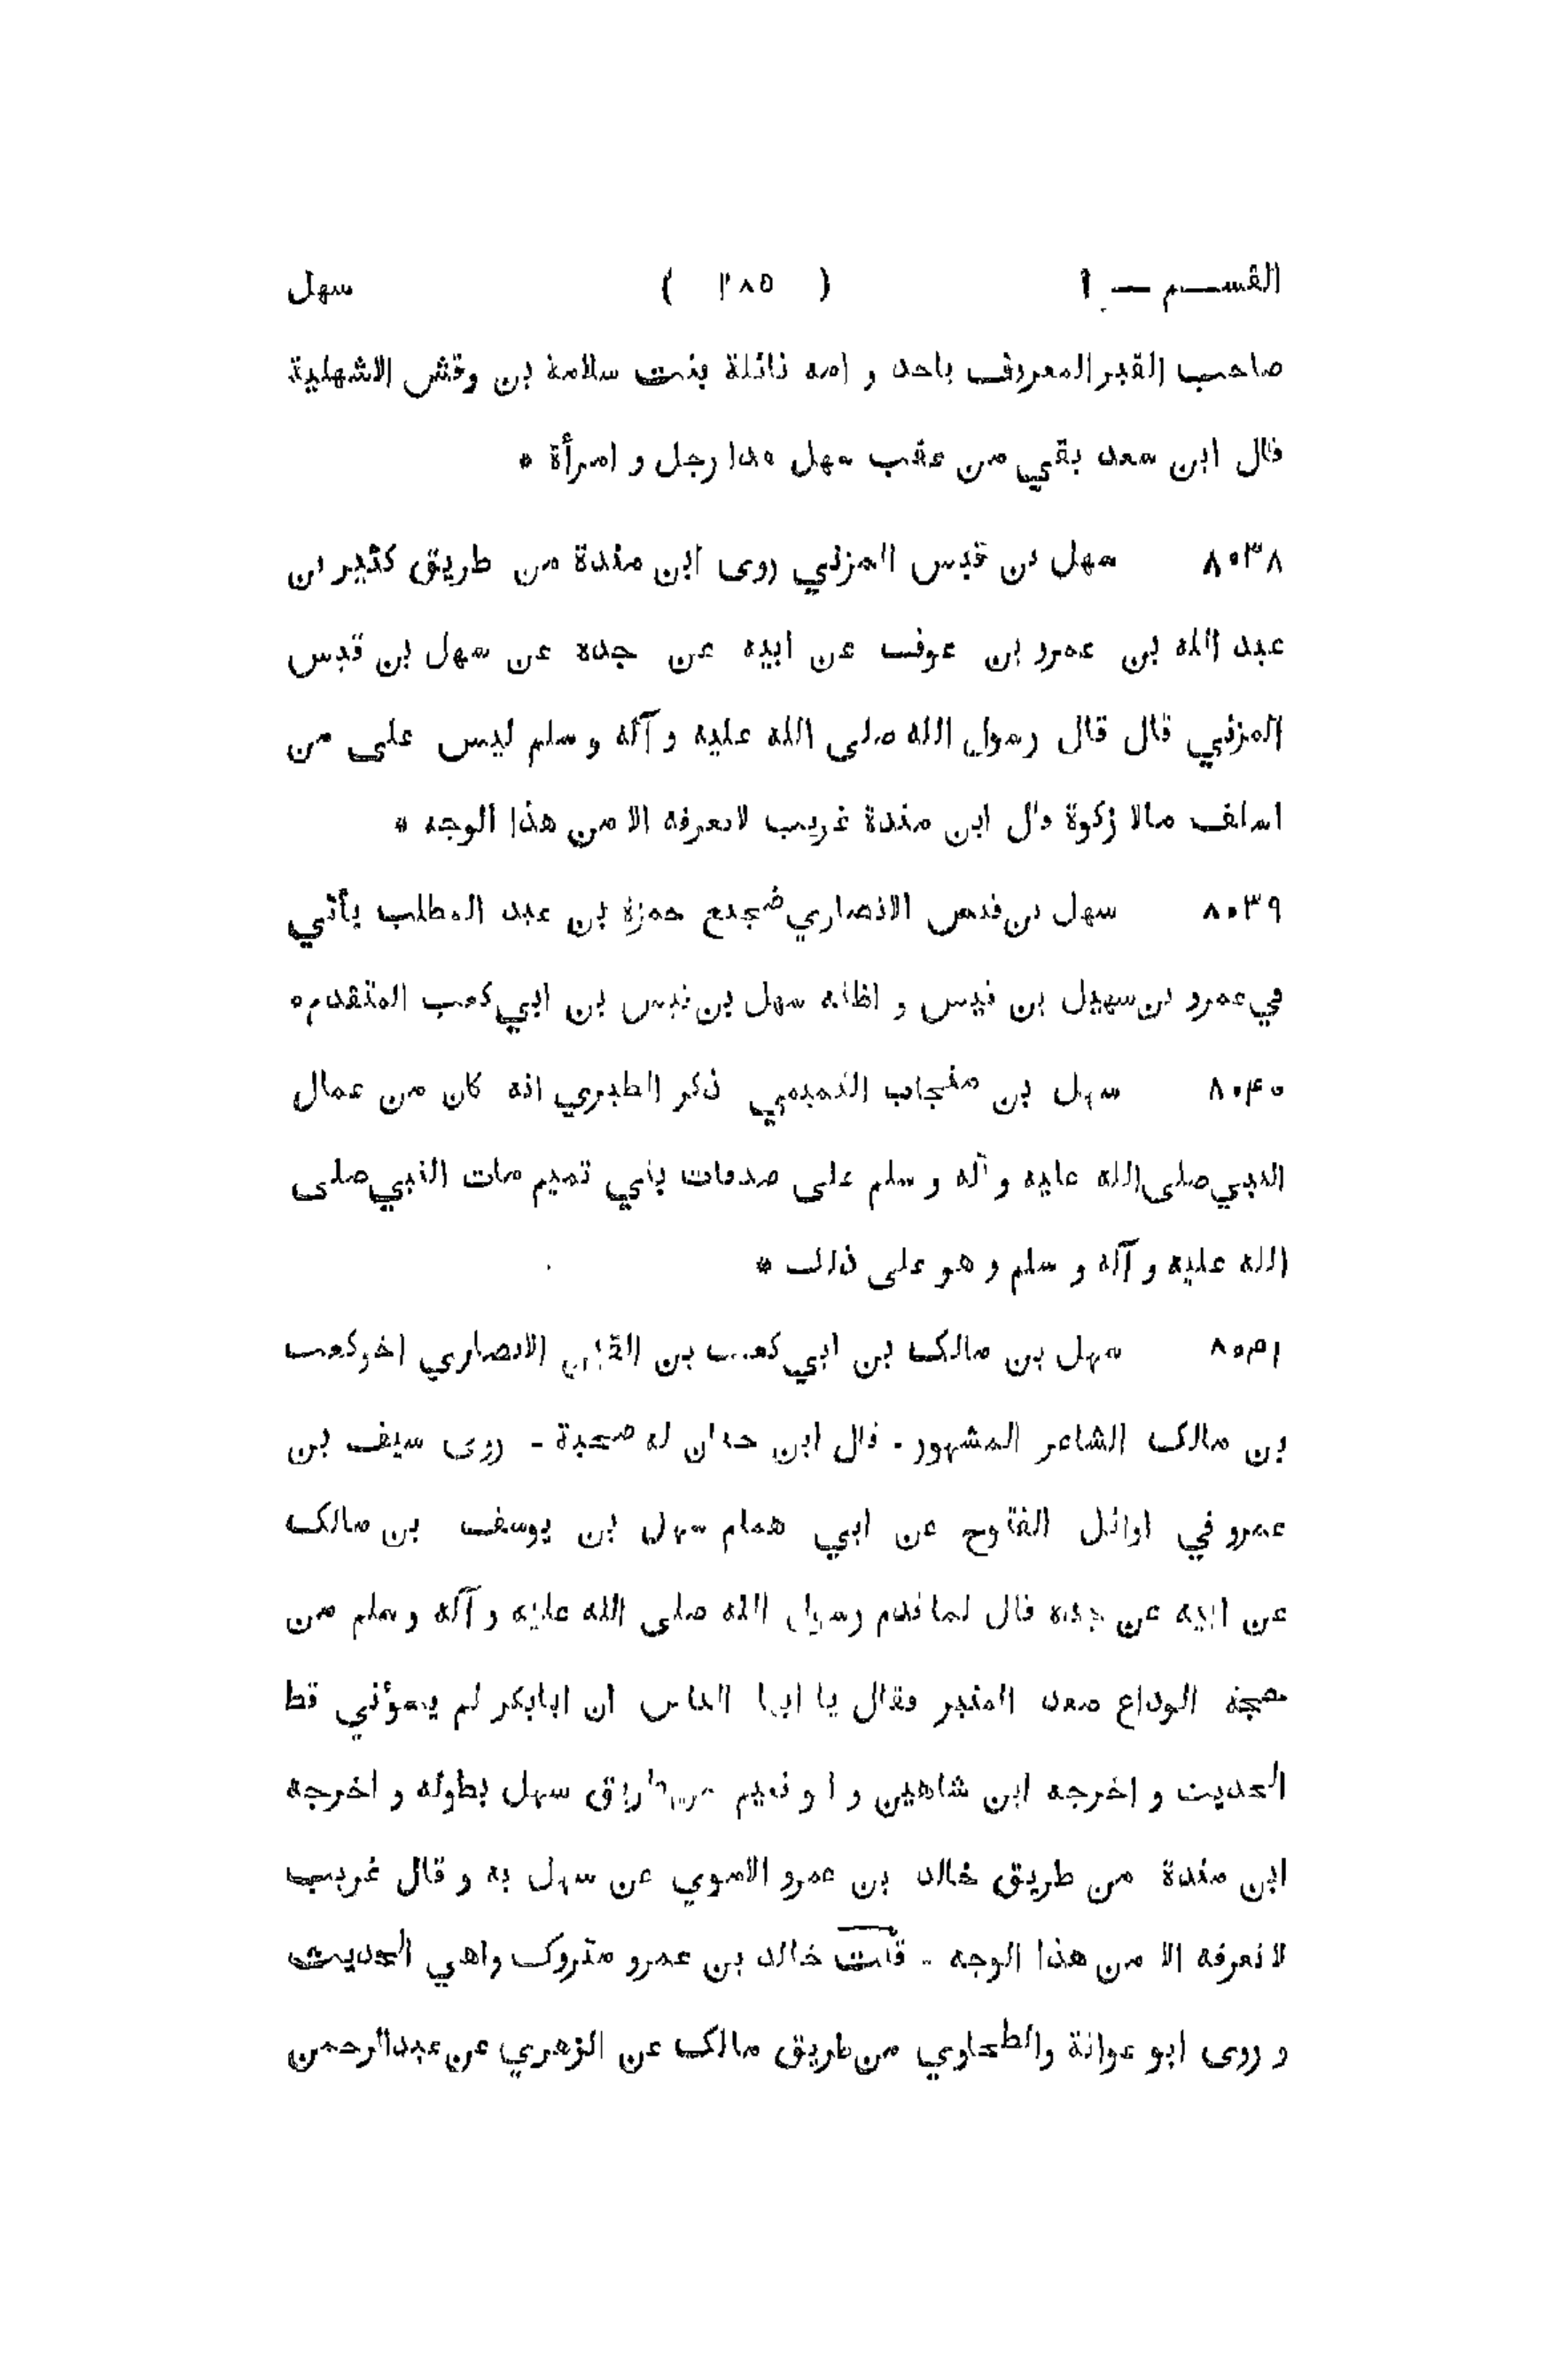 القسم — ١ ( ٢٨٥ ) سهل
صاحب القبر المعروف باحد و امه نائلة بنت سلامة بن وقش الاشهلية
قال ابن سعد بقي من عقب سهل هذا رجل و امرأة *
٨٠٣٨ سهل بن قيس المزني روى ابن مندة من طريق كثير بن
عبد الله بن عمرو بن عوف عن ابيه عن جده عن سهل بن قيس
المزني قال قال رسول الله صلى الله عليه و آله و سلم ليس على من
اسلف مالا زكوة قال ابن مندة غريب لانعرفه الا من هذا الوجه *
٨٠٣٩ سهل بن قيس الانصاري ضجيع حمزة بن عبد المطلب يأتي
في عمرو بن سهيل بن قيس و اظنه سهل بن قيس بن ابي كعب المتقدم *
٨٠٤٠ سهل بن منجاب التميمي ذكر الطبري انه كان من عمال
النبي صلى الله عليه و آله و سلم على صدقات بني تميم مات النبي صلى
الله عليه و آله و سلم و هو على ذلك *
٨٠٤١ سهل بن مالك بن ابي كعب بن القين الانصاري اخو كعب
بن مالك الشاعر المشهور - قال ابن حبان له صحبة - روى سيف بن
عمرو في اوائل الفتوح عن ابي همام سهل بن يوسف بن مالك
عن ابيه عن جده قال لما قدم رسول الله صلى الله عليه و آله و سلم من
حجة الوداع صعد المنبر فقال يا ايها الناس ان ابابكر لم يسؤني قط
الحديث و اخرجه ابن شاهين و ابو نعيم من طريق سهل بطوله و اخرجه
ابن مندة من طريق خالد بن عمرو الاموي عن سهل به و قال غريب
لا نعرفه الا من هذا الوجه - قلت خالد بن عمرو متروك واهي الحديث
و روى ابو عوانة والطحاوي من طريق مالك عن الزهري عن عبدالرحمن